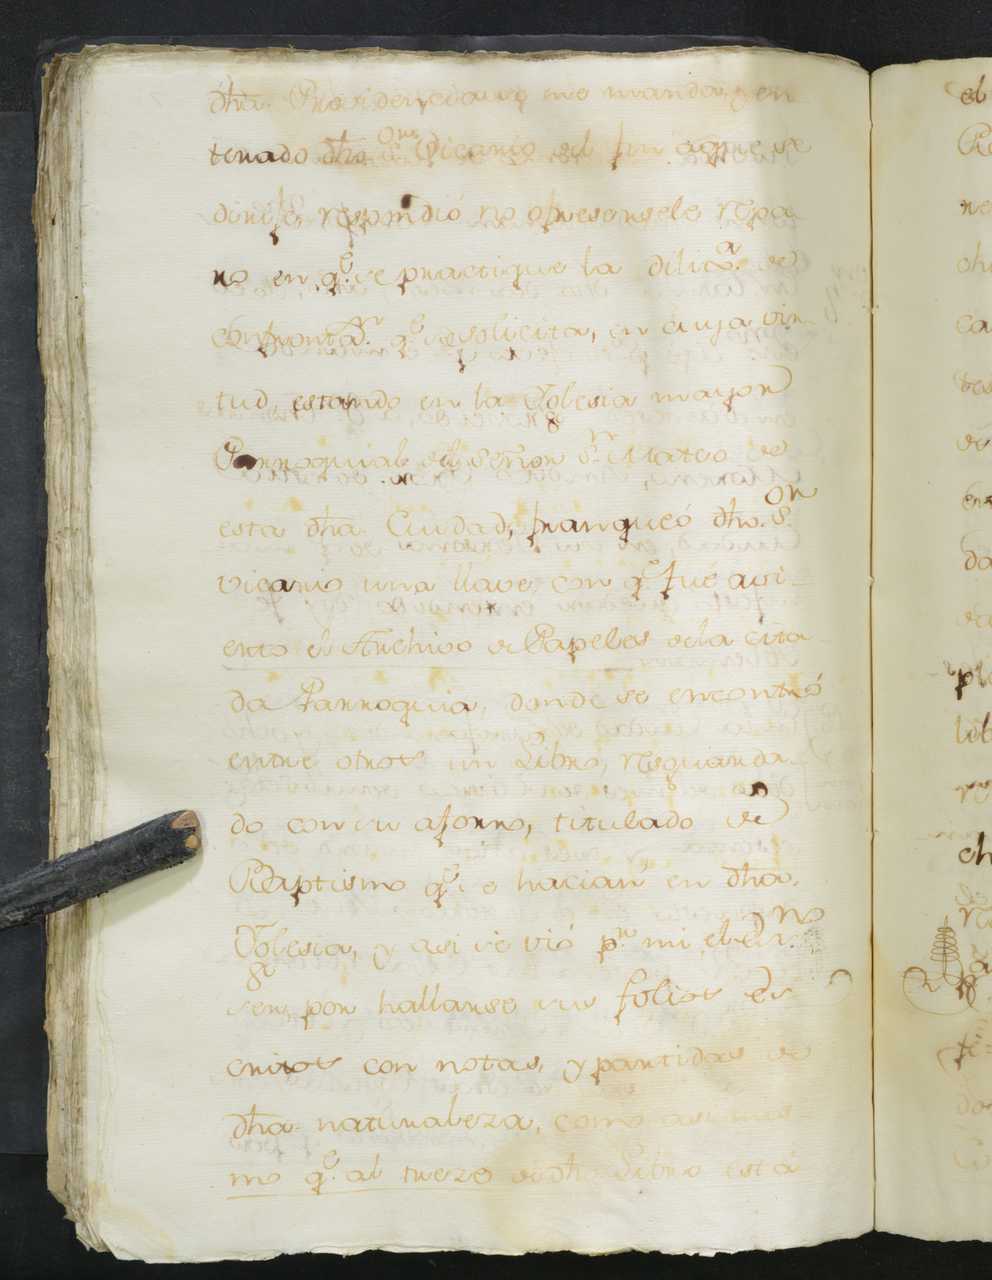 dha. Residencia me manda, y en
terado dho. Sor. Vicario del fin aque se
dirije, respondió no ofresersele repa
ro en qe. se practique la diliga. de
confrontaon. qe. se solicita, en cuya vir-
tud, estando en la Yglesia mayor
Parroquial del Señor Sn. Mateo de
esta dha. Ciudad, franqueó dho. Sor.
Vicario una llave, con qe. fué avi-
erto el Archivo de Papeles dela cita
da Parroquia, donde se encontró
entre otros un Libro, resguarda-
do con su aforro, titulado de
Baptismo qe. se hacian en dha.
Yglesia, y asi se vió pr. mi el Esno.
ser, por hallarse sus folios es
critos con notas, y partidas de
dha. naturaleza, como asimis
mo qe. al tres de dho. Libro está
el
ne
ca
tes
da
pli
lib
ch